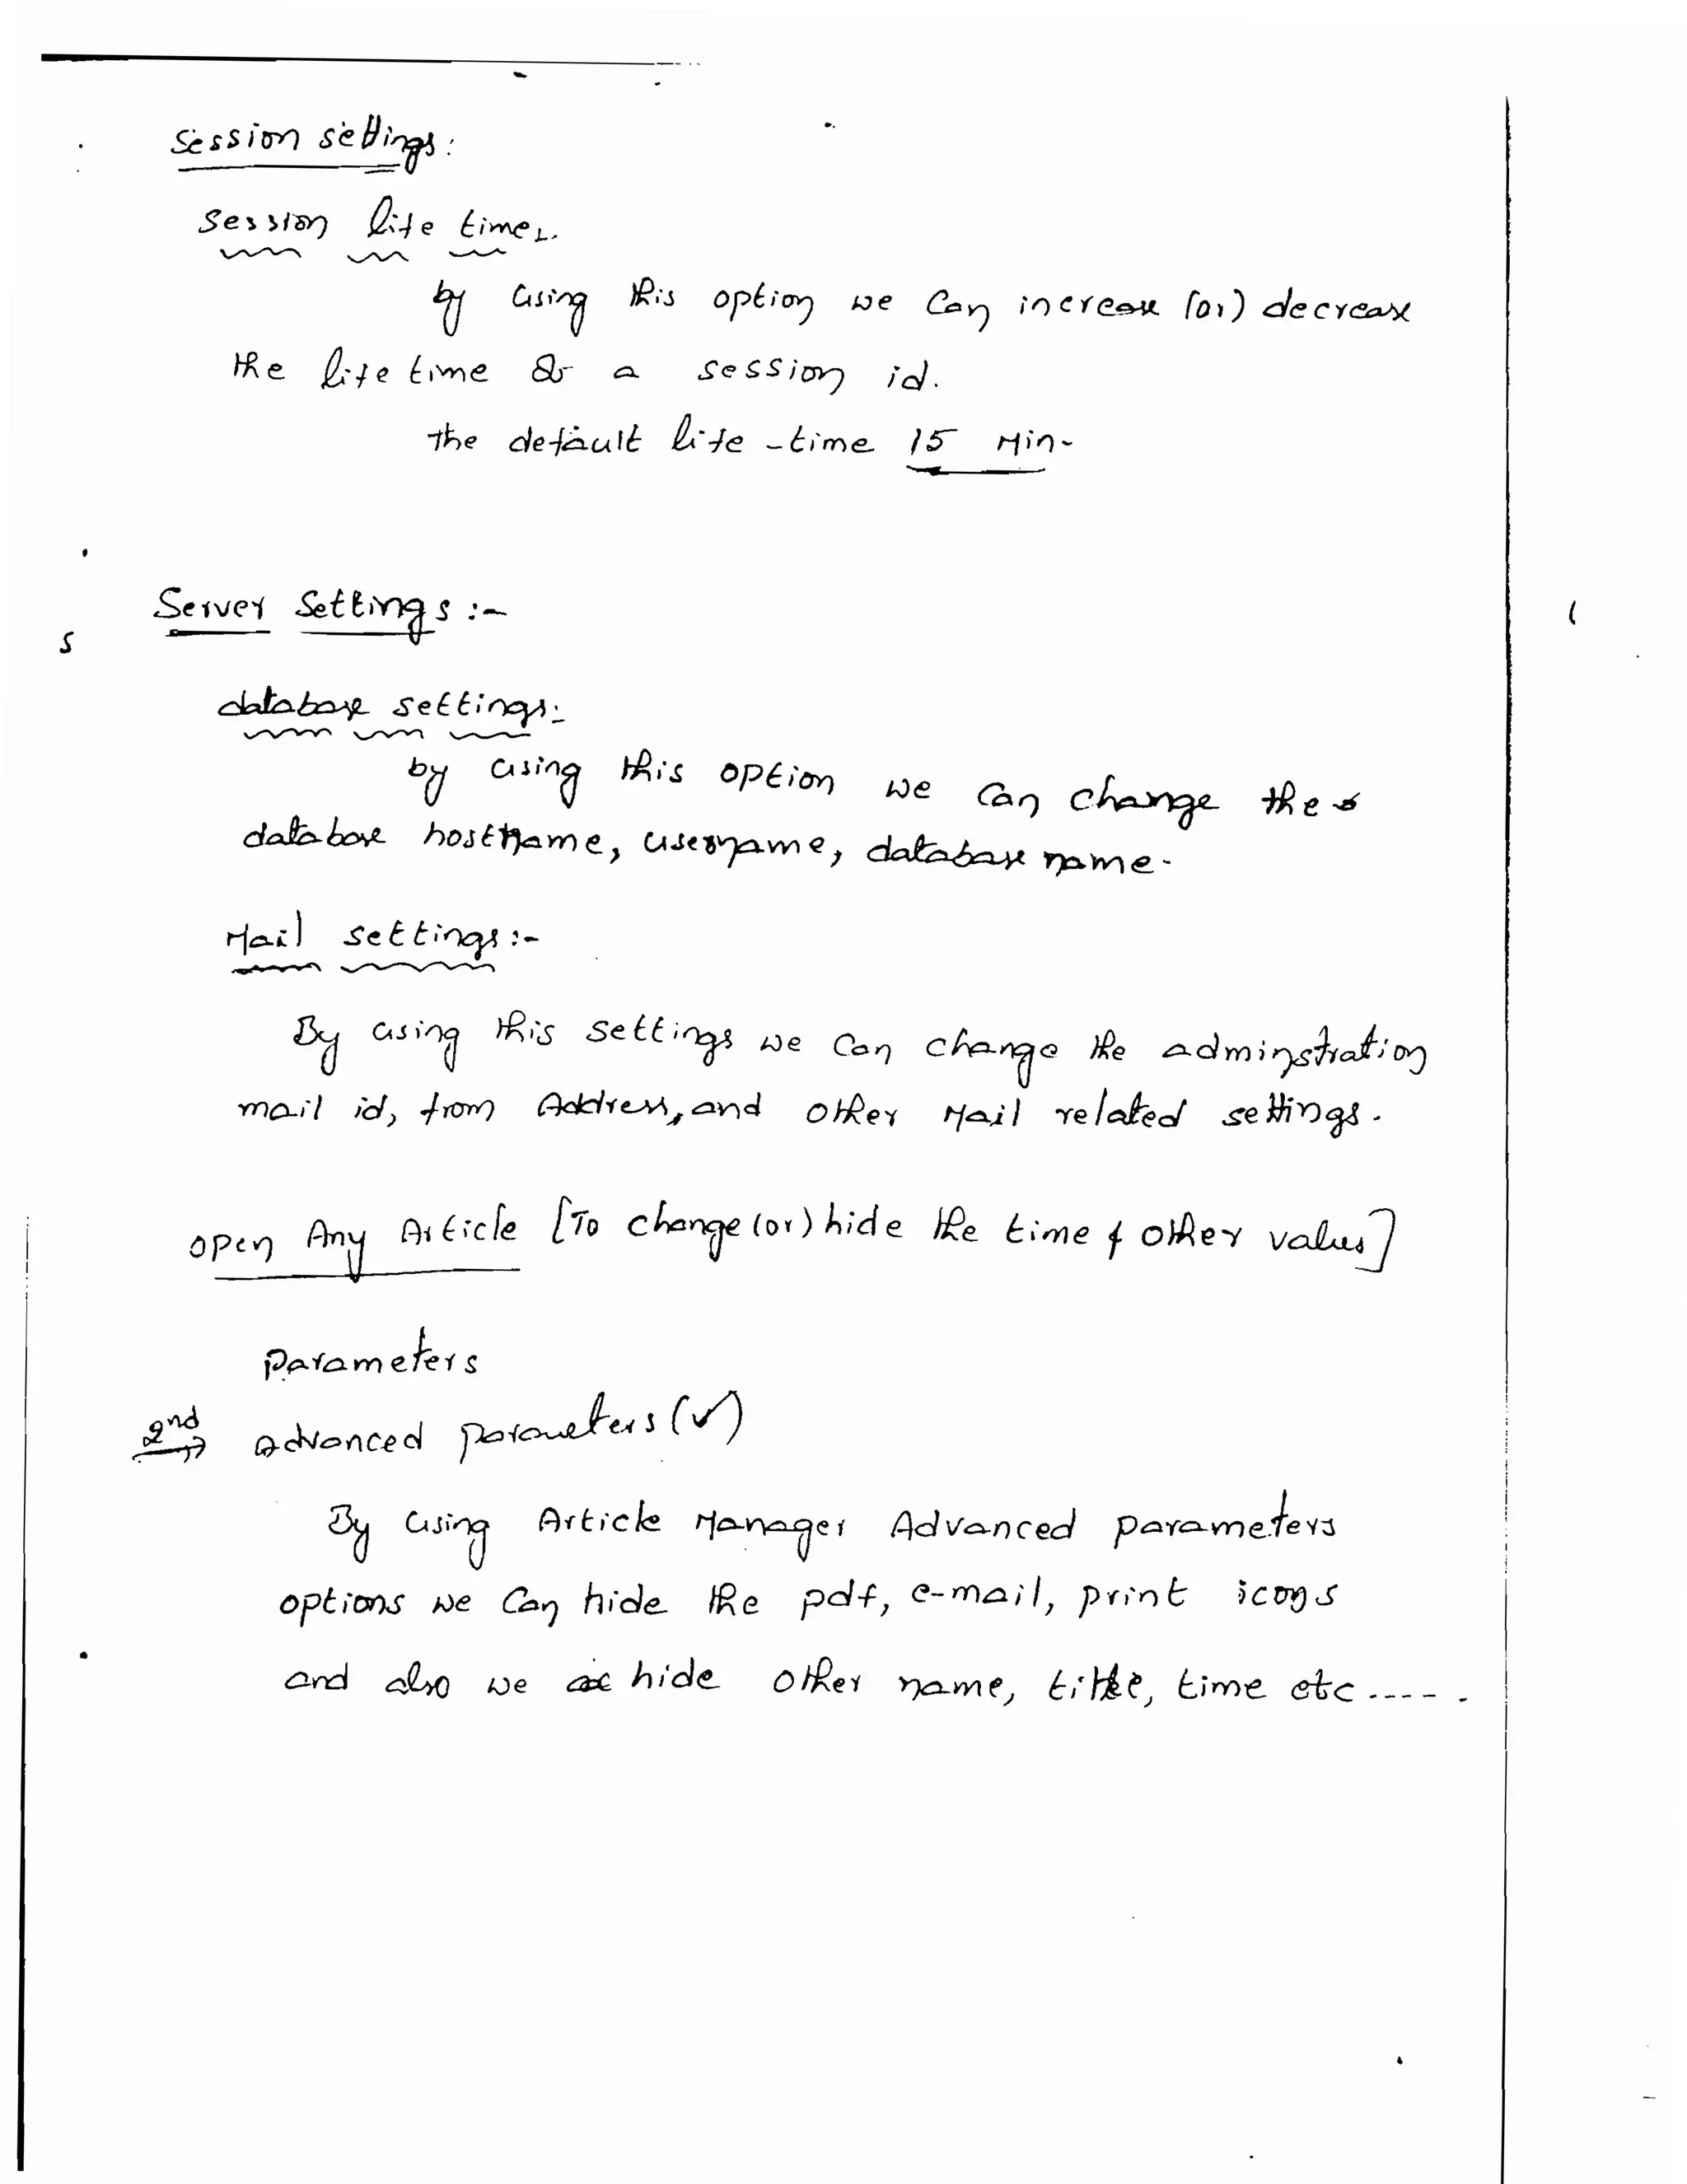 Session settings:
Session life time:-
by using this option we can increase (or) decrease
the life time of a session id.
The default life-time 15 Min-
Server Settings :-
database settings:-
by using this option we can change the
database hostname, username, database name-
Mail settings :-
By using this settings we can change the adminstration
mail id, from Address, and other Mail related settings.
open Any Article [To change (or) hide the time & other values]
parameters
2nd advanced parameters (✓)
By using Article Manager Advanced parameters
options we can hide the pdf, e-mail, print icons
and also we hide other name, title, time etc ----- .